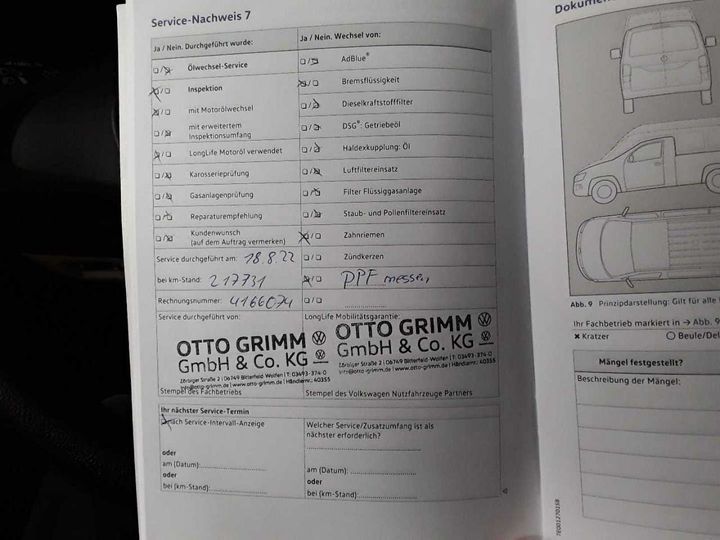 Service-Nachweis 7
Ja / Nein. Durchgeführt wurde:
Ölwechsel-Service
Inspektion
mit Motorölwechsel
mit erweitertem
Inspektionsumfang
LongLife Motoröl verwendet
Karosserieprüfung
Gasanlagenprüfung
Reparaturempfehlung
Kundenwunsch
(auf dem Auftrag vermerken)
Service durchgeführt am: 18.8.22
bei km-Stand: 217731
Rechnungsnummer: 4166074
Service durchgeführt von:
OTTO GRIMM
GmbH & Co. KG
Zörbiger Straße 2 | 06749 Bitterfeld-Wolfen | T: 03493-374 0
info@otto-grimm.de | www.otto-grimm.de | Händlernr.: 40355
Stempel des Fachbetriebs
Ja / Nein. Wechsel von:
AdBlue®
Bremsflüssigkeit
Dieselkraftstofffilter
DSG®: Getriebeöl
Haldexkupplung: Öl
Luftfiltereinsatz
Filter Flüssiggasanlage
Staub- und Pollenfiltereinsatz
Zahnriemen
Zündkerzen
DPF messen
LongLife Mobilitätsgarantie:
OTTO GRIMM
GmbH & Co. KG
Zörbiger Straße 2 | 06749 Bitterfeld-Wolfen | T: 03493-374 0
info@otto-grimm.de | www.otto-grimm.de | Händlernr.: 40355
Stempel des Volkswagen Nutzfahrzeuge Partners
Ihr nächster Service-Termin
nach Service-Intervall-Anzeige
oder
am (Datum):
oder
bei (km-Stand):
Welcher Service/Zusatzumfang ist als
nächster erforderlich?
am (Datum):
oder
bei (km-Stand):
Dokumen
Abb. 9 Prinzipdarstellung: Gilt für alle
Ihr Fachbetrieb markiert in → Abb. 9
× Kratzer
Beule/Del
Mängel festgestellt?
Beschreibung der Mängel: